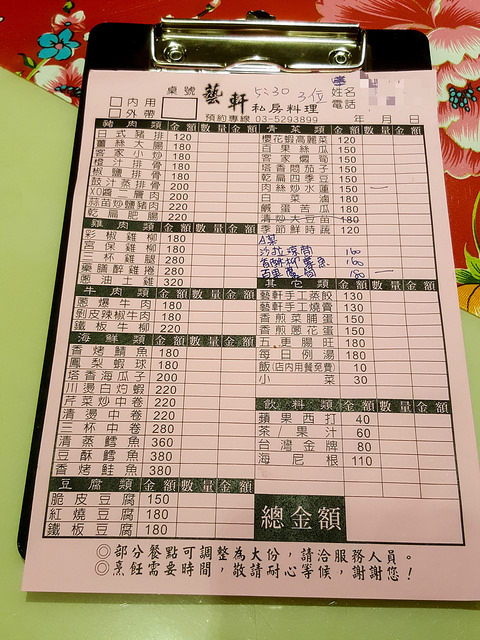 桌號 藝軒 5:30 3位 姓名
內用
外帶
私房料理 電話
預約專線 03-5293899 年 月 日
豬肉類 金額 數量 金額
日式豬排 120
薑絲大腸 180
客家小炒 180
橙汁排骨 180
椒鹽排骨 180
豉汁蒸排骨 200
XO醬二層肉 200
蒜苗炒鹽豬肉 220
乾扁肥腸 220
雞肉類 金額 數量 金額
彩椒雞柳 180
宮保雞柳 180
三杯雞腿 280
藥膳醉雞捲 280
蔥油土雞 320
牛肉類 金額 數量 金額
蔥爆牛肉 180
剝皮辣椒牛肉 180
鐵板牛柳 220
海鮮類 金額 數量 金額
香烤鯖魚 180
鳳梨蝦球 180
塔香海瓜子 200
川燙白灼蝦 220
芹菜炒中卷 220
清燙中卷 220
三杯中卷 280
清蒸鱈魚 360
豆酥鱈魚 380
香烤鮭魚 380
豆腐類 金額 數量 金額
脆皮豆腐 150
紅燒豆腐 180
鐵板豆腐 180
青菜類 金額 數量 金額
櫻花蝦高麗菜 120
百果絲瓜 150
客家燜筍 150
塔香茄子 150
乾扁四季豆 150
肉絲炒水蓮 150 一
白菜滷 180
鹹蛋苦瓜 180
清炒大豆苗 180
季節鮮時蔬 120
A菜
沙拉涼筍 160
160
180 一
其它類 金額 數量 金額
藝軒手工蒸餃 130
藝軒手工燒賣 130
香煎菜脯蛋 150
香煎蔥花蛋 150
五更腸旺 180
每日例湯 180
飯(店內用餐免費) 10
小菜 30
飲料類 金額 數量 金額
蘋果西打 40
茶/果汁 60
台灣金牌 80
海尼根 110
總金額
◎部分餐點可調整為大份，請洽服務人員。
◎烹飪需要時間，敬請耐心等候，謝謝您！